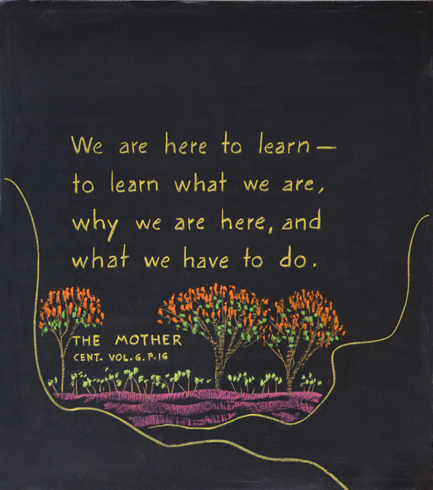 We are here to learn —
to learn what we are,
why we are here, and
what we have to do.
THE MOTHER
CENT. VOL. 6. P. 16